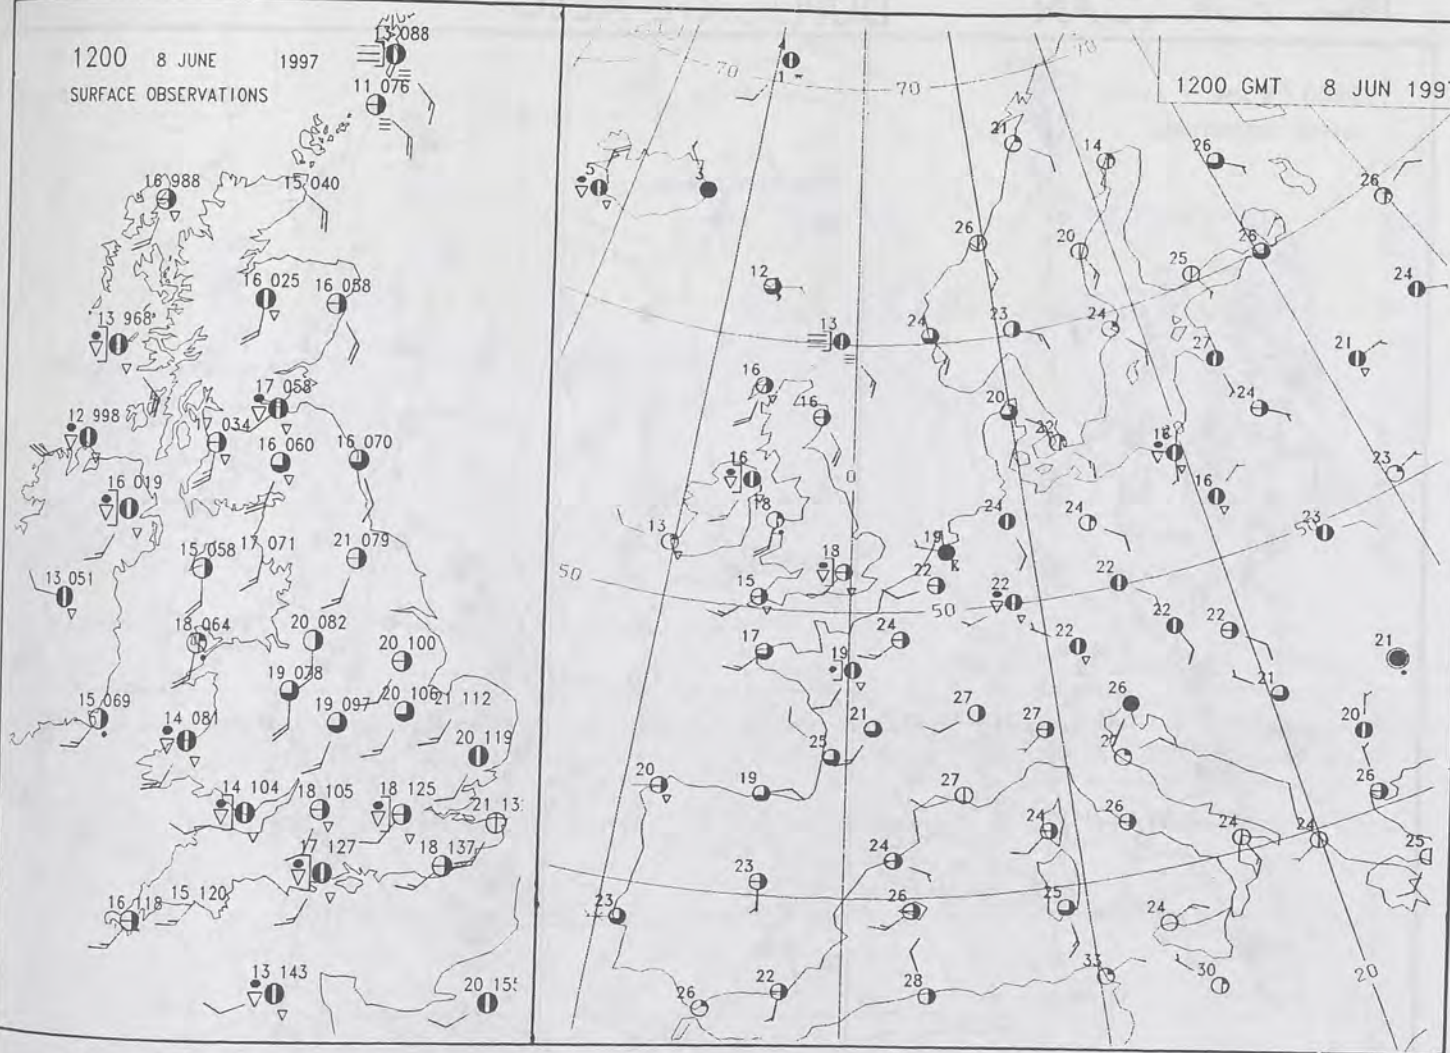 1200 8 JUNE 1997
SURFACE OBSERVATIONS
13 088
11 076
16 988
15 040
16 025
16 058
13 968
17 058
12 998
034
16 060
16 070
16 019
15 058
17 071
21 079
13 051
18 064
20 082
20 100
19 078
15 069
19 097
20 106
21 112
14 081
20 119
14 104
18 105
18 125
21 13
17 127
18 137
16 118
15 120
13 143
20 155
1200 GMT 8 JUN 1997
70
70
70
1
21
14
26
5
3
26
26
20
26
25
24
12
13
24
23
24
27
21
16
16
24
20
22
16
23
16
0
16
18
24
24
23
50
13
19
18
50
22
15
22
22
50
22
22
22
17
24
21
19
26
21
27
27
20
25
20
19
27
26
24
26
24
24
25
24
23
23
26
25
24
22
28
33
30
26
20